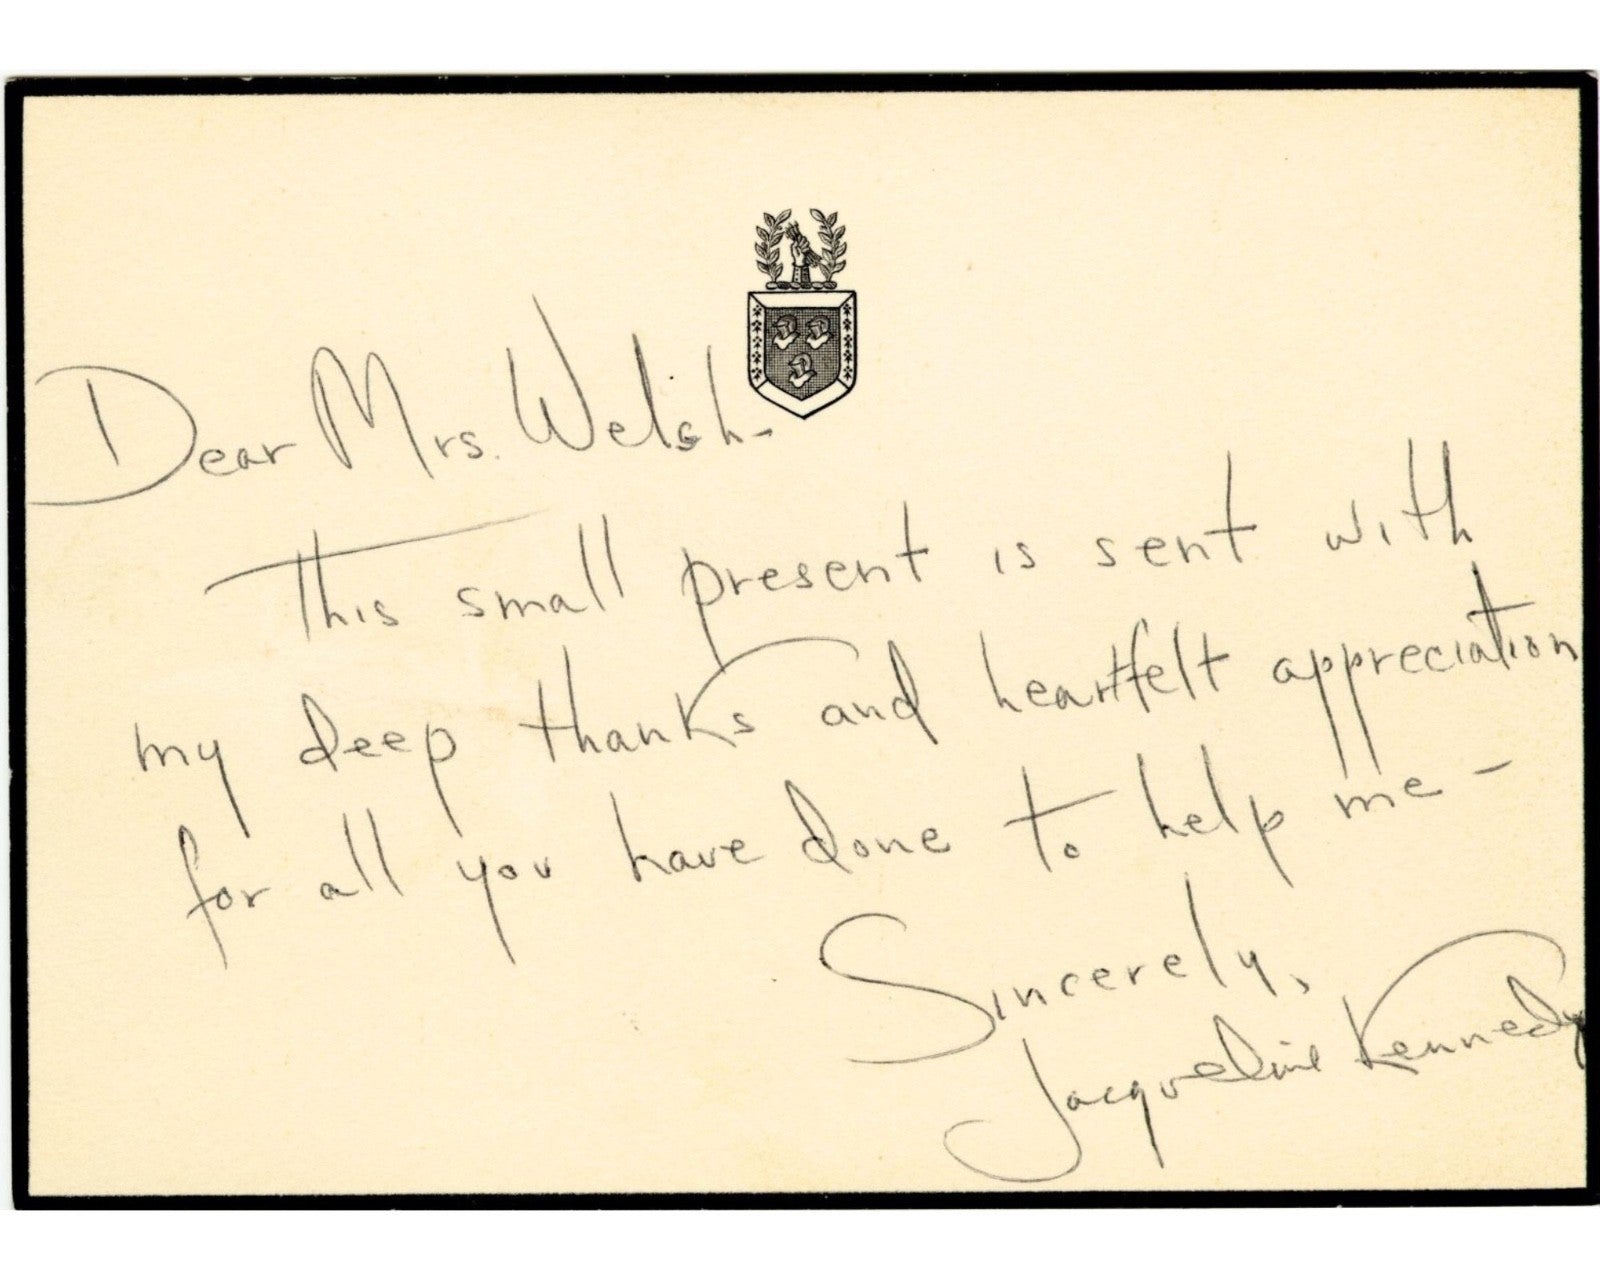 Dear Mrs. Welsh -
This small present is sent with
my deep thanks and heartfelt appreciation
for all you have done to help me -
Sincerely,
Jacqueline Kennedy